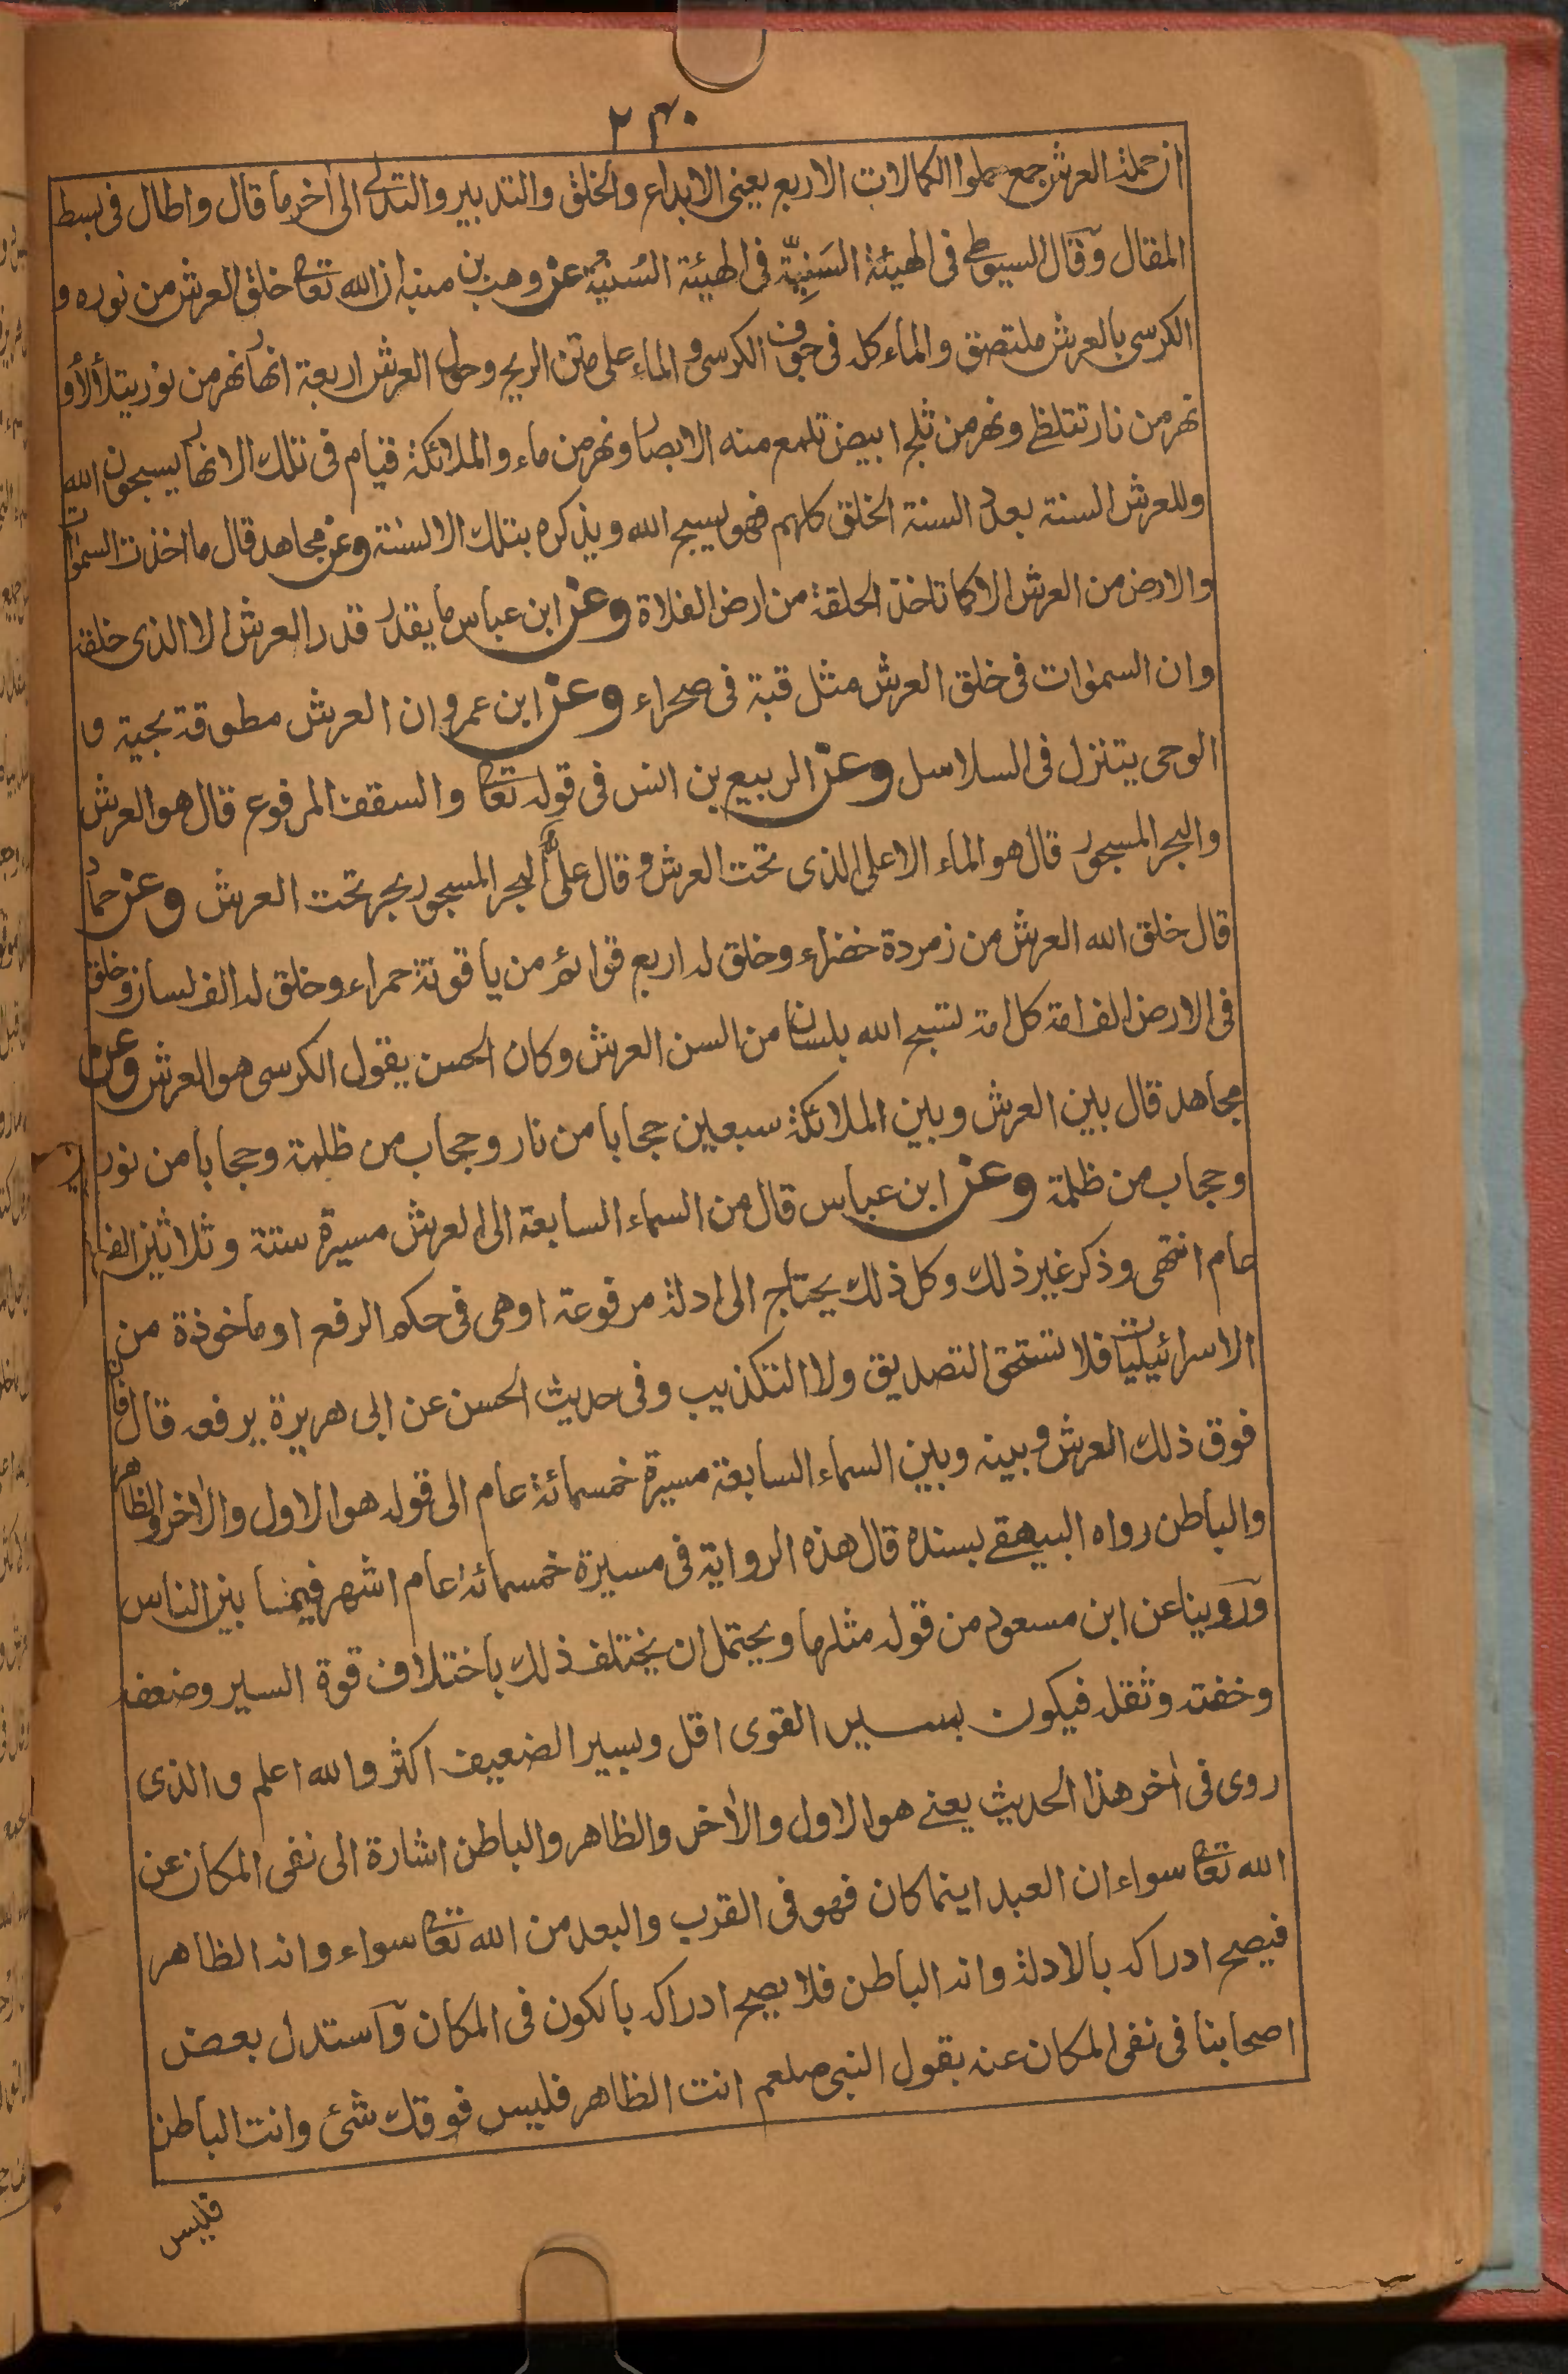 ٢٣٠
ان حملة العرش جمع حملوا الكمالات الاربع يعنى الابداع والخلق والتدبير والتدلى الى اٰخر ما قال واطال فى بسط
المقال وقال السيوطى فى الهيئة السَنِيّة فى الهيئة السُنّية عن وهب بن منبه ان الله تعالى خلق العرش من نوره و
الكرسى بالعرش ملتصق والماء كله فى جوف الكرسى و الماء على متن الريح وحول العرش اربعة انهار نهر من نور يتلألأ و
نهر من نار تتلظى ونهر من ثلج ابيض تلمع منه الابصار ونهر من ماء والملائكة قيام فى تلك الانهار يسبحون الله
وللعرش السنة بعدد السنة الخلق كلهم فهو يسبح الله ويذكره بتلك الالسنة وعن مجاهد قال ما اخذت السمٰوات
والارض من العرش الا كما تاخذ الحلقة من ارض الفلاة وعن ابن عباس ما يقدر قدر العرش الا الذى خلقه
وان السمٰوات فى خلق العرش مثل قبة فى صحراء وعن ابن عمرو ان العرش مطوقة بحية و
الوحى يتنزل فى السلاسل وعن الربيع بن انس فى قوله تعالى والسقف المرفوع قال هو العرش
والبحر المسجور قال هو الماء الاعلى الذى تحت العرش و قال على البحر المسجور بحر تحت العرش وعن حماد
قال خلق الله العرش من زمردة خضراء وخلق له اربع قوائم من ياقوتة حمراء وخلق له الف لسان وخلق
فى الارض الف امة كل امة تسبح الله بلسان من السن العرش وكان الحسن يقول الكرسى هو العرش وعن
مجاهد قال بين العرش وبين الملائكة سبعين حجابا من نار وحجاب من ظلمة وحجابا من نور
وحجاب من ظلمة وعن ابن عباس قال من السماء السابعة الى العرش مسيرة ستة وثلاثين الف
عام انتهى وذكر غير ذلك وكل ذلك يحتاج الى ادلة مرفوعة او هى فى حكم الرفع او ماخوذة من
الاسرائيليات فلا تستحق التصديق ولا التكذيب وفى حديث الحسن عن ابى هريرة يرفعه قال فان
فوق ذلك العرش وبينه وبين السماء السابعة مسيرة خمسمائة عام الى قوله هو الاول والاٰخر والظاهر
والباطن رواه البيهقى بسنده قال هذه الرواية فى مسيرة خمسمائة عام اشهر فيما بين الناس
وروينا عن ابن مسعود من قوله مثلها ويحتمل ان يختلف ذلك باختلاف قوة السير وضعفه
وخفته وثقله فيكون بسير القوى اقل وبسير الضعيف اكثر والله اعلم والذى
روى فى اٰخر هذا الحديث يعنى هو الاول والاٰخر والظاهر والباطن اشارة الى نفى المكان عن
الله تعالى سواء ان العبد اينما كان فهو فى القرب والبعد من الله تعالى سواء وانه الظاهر
فيصح ادراكه بالادلة وانه الباطن فلا يصح ادراكه بالكون فى المكان واستدل بعض
اصحابنا فى نفى المكان عنه بقول النبى صلعم انت الظاهر فليس فوقك شئ وانت الباطن
فليس